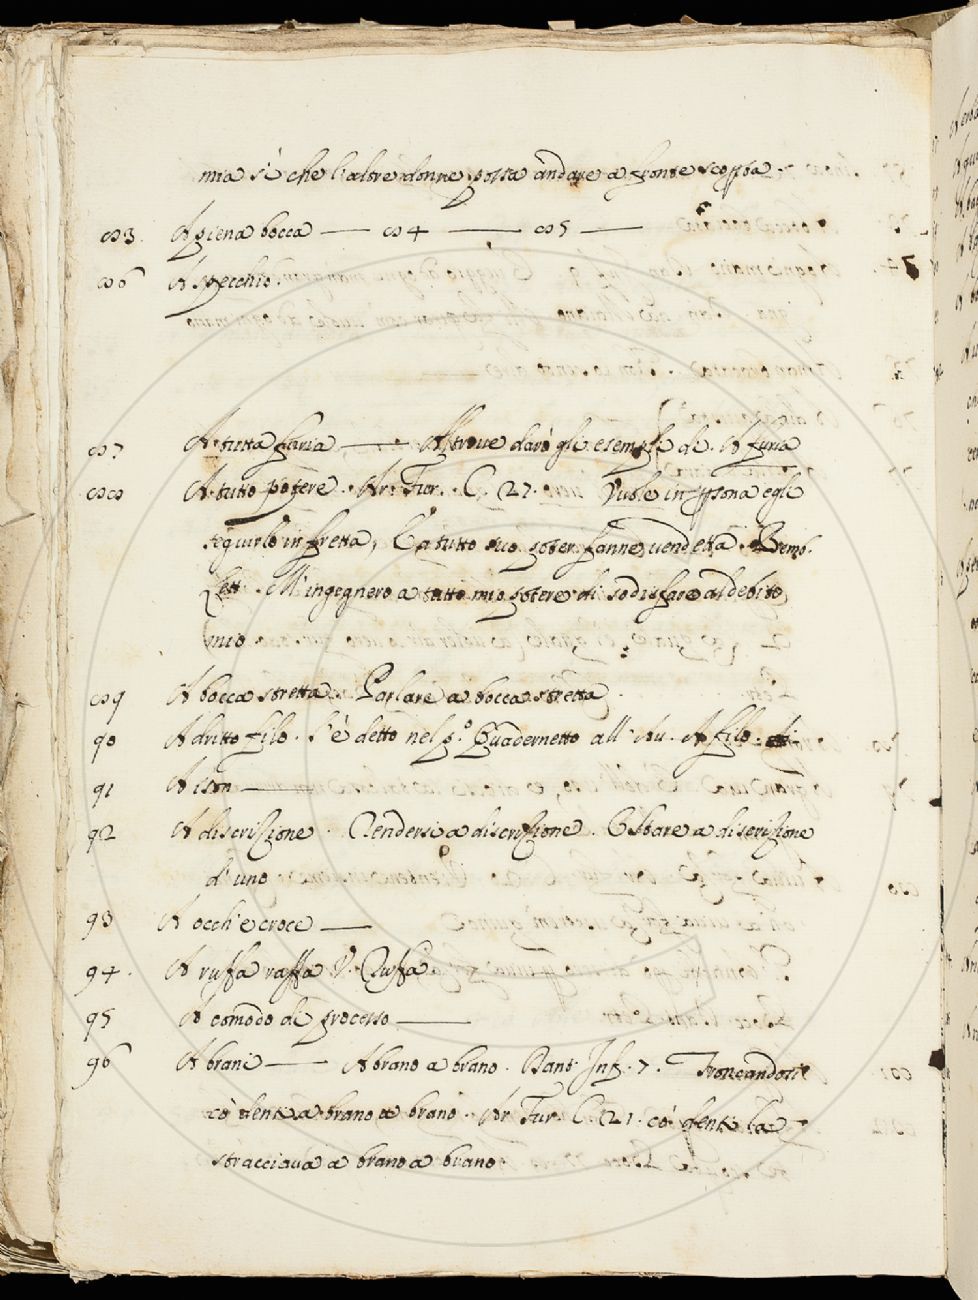 mia sì che l'altre donne possa andare a fronte scoperta.
83. A piena bocca — 84 — 85 —
86 A specchio.
87 A tutta furia — Altrove darò gli esempli di A furia
88 A tutto potere. Ar. Fur. C. 27. Vuole in psona egli
seguirlo in fretta, E a tutto suo poter farne vendetta. Bemb.
Lett. M'ingegnero a tutto mio potere di sodisfare al debito
mio
89 A bocca stretta. Parlare a bocca stretta.
90 A dritto filo. S'è detto nel p.º Quadernetto all'Au. A filo.
91 A ison —
92 A discrizione. Rendersi a discrizione. E Stare a discrizione
d'uno
93 A occh' e croce —
94. A ruffa raffa V. Ruffa.
95 A comodo di processo —
96 A brani — A brano a brano. Dant. Inf. 7. Troncandosi
co' denti a brano a brano. Ar. Fur. C. 21. co' denti la
stracciava a brano a brano